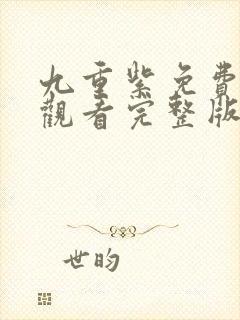 九重紫免費
觀看完整版
世昀